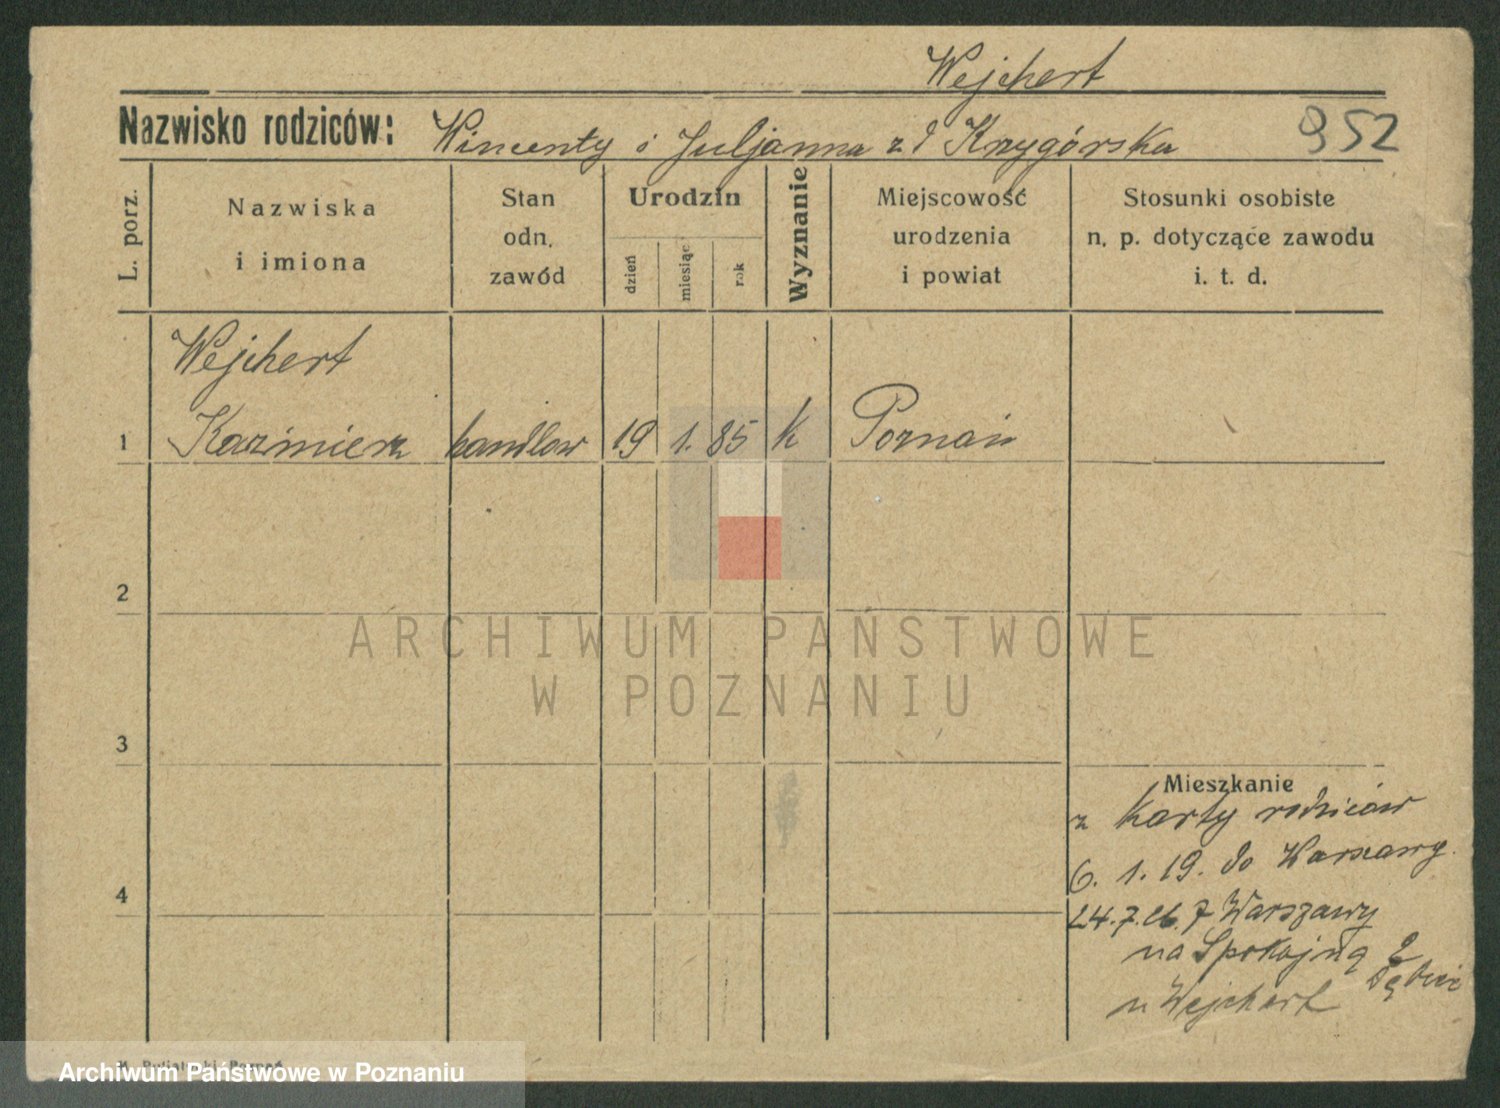 Wejchert
Nazwisko rodziców: Wincenty i Juljanna z d Krzygórska 952
L. porz.
Nazwiska
i imiona
Stan
odn.
zawód
Urodzin
dzień
miesiąc
rok
Wyznanie
Miejscowość
urodzenia
i powiat
Stosunki osobiste
n. p. dotyczące zawodu
i. t. d.
Wejchert
1 Kazimierz handlow 19 1. 85 K Poznań
2
ARCHIWUM PAŃSTWOWE
W POZNANIU
3
Mieszkanie
z Karty rodziców
6. 1. 19. do Warszawy.
4
24.7. z Warszawy
na Spokojną 2
Dębiec
u Wejchert
Poznań
Archiwum Państwowe w Poznaniu